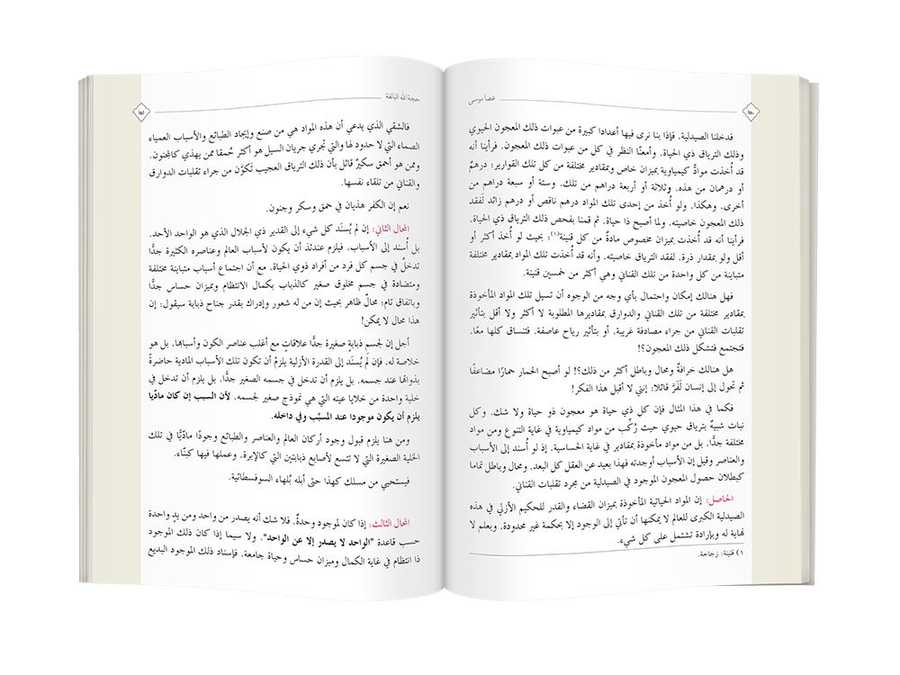 عصا موسى
فدخلنا الصيدلية، فإذا بنا نرى فيها أعدادا كبيرة من عبوات ذلك المعجون الحيوي
وذلك الترياق ذي الحياة. وأمعنّا النظر في كل من عبوات ذلك المعجون، فرأينا أنه
قد أُخذت موادٌّ كيمياوية بميزان خاص وبمقادير مختلفة من كل تلك القوارير: درهمٌ
أو درهمان من هذه، وثلاثة أو أربعة دراهم من تلك، وستة أو سبعة دراهم من
أخرى. وهكذا. ولو أُخذ من إحدى تلك المواد درهم ناقص أو درهم زائد لفقد
ذلك المعجون خاصيته. ولما أصبح ذا حياة. ثم قمنا بفحص ذلك الترياق ذي الحياة،
فرأينا أنه قد أُخذت بميزان مخصوص مادةٌ من كل قنينة(١)؛ بحيث لو أُخذ أكثر أو
أقل ولو بمقدار ذرة، لفقد الترياق خاصيته. وأنه قد أُخذت تلك المواد بمقادير مختلفة
متباينة من كل واحدة من تلك القناني وهي أكثر من خمسين قنينة.
فهل هنالك إمكان واحتمال بأي وجه من الوجوه أن تسيل تلك المواد المأخوذة
بمقادير مختلفة من تلك القناني والدوارق بمقاديرها المطلوبة لا أكثر ولا أقل بتأثير
تقلبات القناني من جراء مصادفة غريبة، أو بتأثير رياح عاصفة. فتنساق كلها معًا،
فتجتمع فتشكل ذلك المعجون؟!
هل هنالك خرافةٌ ومحال وباطل أكثر من ذلك؟! لو أصبح الحمار حمارًا مضاعفًا
ثم تحول إلى إنسان لَفَرَّ قائلا: إنني لا أقبل هذا الفكر!
فكما في هذا المثال فإن كل ذي حياة هو معجون ذو حياة ولا شك. وكل
نبات شبيهٌ بترياق حيوي حيث رُكّب من مواد كيمياوية في غاية التنوع ومن مواد
مختلفة جدًّا، بل من مواد مأخوذة بمقادير في غاية الحساسية. إذ لو أُسند إلى الأسباب
والعناصر وقيل إن الأسباب أوجدته فهذا بعيد عن العقل كل البعد. ومحال وباطل تماما
كبطلان حصول المعجون الموجود في الصيدلية من مجرد تقلبات القناني.
الحاصل: إن المواد الحياتية المأخوذة بميزان القضاء والقدر للحكيم الأزلي في هذه
الصيدلية الكبرى للعالم لا يمكنها أن تأتي إلى الوجود إلا بحكمة غير محدودة، وبعلم لا
نهاية له وبإرادة تشتمل على كل شيء.
١) قنينة: زجاجة.
حجة الله البالغة
فالشقي الذي يدعي أن هذه المواد هي من صنع وإيجاد الطبائع والأسباب العمياء
الصماء التي لا حدود لها والتي تجري جريان السيل هو أكثر حُمقا ممن يهذي كالمجنون.
وممن هو أحمق سكيرٌ قائل بأن ذلك الترياق العجيب تكوّن من جراء تقلبات الدوارق
والقناني من تلقاء نفسها.
نعم إن الكفر هذيان في حمق وسكر وجنون.
المحال الثاني: إن لم يُسنَد كل شيء إلى القدير ذي الجلال الذي هو الواحد الأحد.
بل أُسند إلى الأسباب، فيلزم عندئذ أن يكون لأسباب العالم وعناصره الكثيرة جدًّا
تدخلٌ في جسم كل فرد من أفراد ذوي الحياة. مع أن اجتماع أسباب متباينة مختلفة
ومتضادة في جسم مخلوق صغير كالذباب بكمال الانتظام وبميزان حساس جدًّا
وباتفاق تام؛ محالٌ ظاهر بحيث إن من له شعور وإدراك بقدر جناح ذبابة سيقول: إن
هذا محال لا يمكن!
أجل إن لجسم ذبابة صغيرة جدًّا علاقاتٍ مع أغلب عناصر الكون وأسبابها. بل هو
خلاصة له. فإن لم يُسنَد إلى القدرة الأزلية يلزمُ أن تكون تلك الأسباب المادية حاضرةً
بذواتها عند جسمه. بل يلزم أن تدخل في جسمه الصغير جدًّا. بل يلزم أن تدخل في
خلية واحدة من خلايا عينه التي هي نموذج صغير لجسمه. لأن السبب إن كان ماديًا
يلزم أن يكون موجودا عند المسبّب وفي داخله.
ومن هنا يلزم قبول وجود أركان العالم والعناصر والطبائع وجودًا ماديًّا في تلك
الخلية الصغيرة التي لا تتسع لأصابع ذبابتين التي كالإبرة. وعملها فيها كبنّاء.
فيستحيي من مسلك كهذا حتى أبله بُلهاء السوفسطائية.
المحال الثالث: إذا كان لموجود وحدةٌ. فلا شك أنه يصدر من واحد ومن يدٍ واحدة
حسب قاعدة "الواحد لا يصدر إلا عن الواحد". ولا سيما إذا كان ذلك الموجود
ذا انتظام في غاية الكمال وميزان حساس وحياة جامعة. فإسناد ذلك الموجود البديع